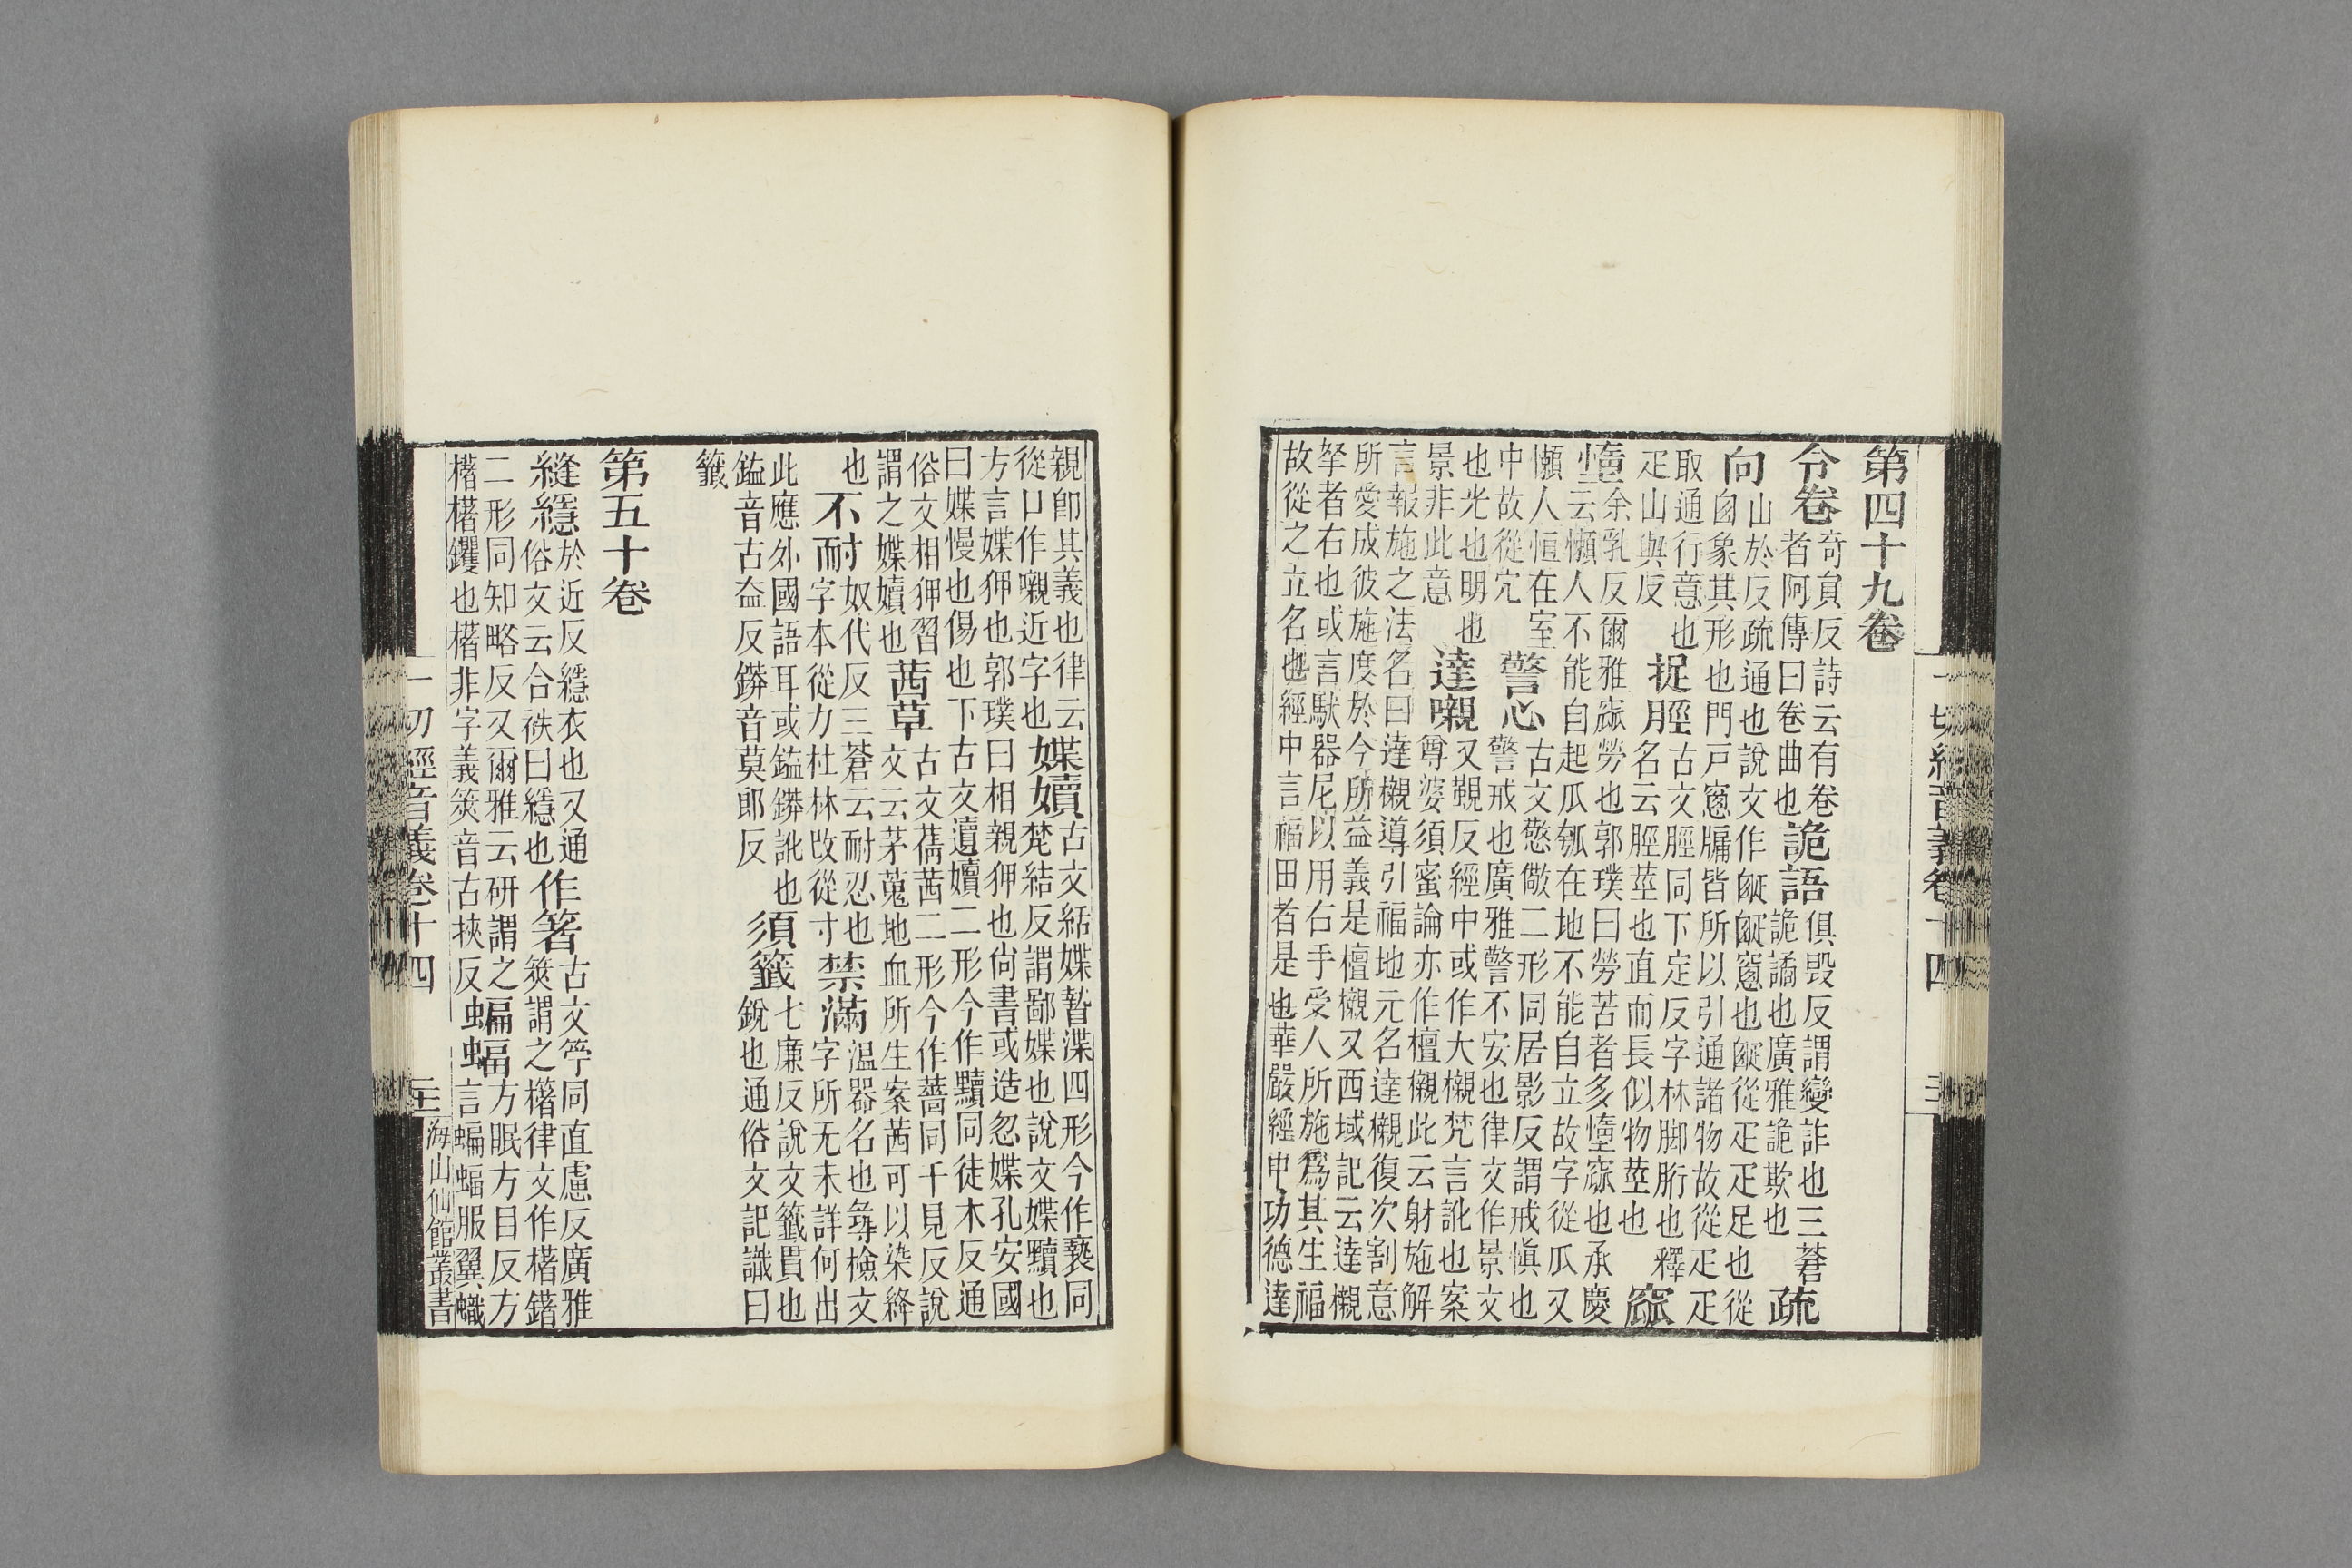 第四十九卷
令卷
奇負反詩云有卷
者阿傳曰卷曲也
詭語
俱毀反謂變詐也三蒼
詭譎也廣雅詭欺也
疏
向
山於反疏通也說文作𤕟𤕟窻也𤕟從疋疋足也從
囪象其形也門戸窻牖皆所以引通諸物故從疋疋
取通行意也
疋山與反
捉脛
古文脛同下定反字林脚胻也釋
名云脛莖也直而長似物莖也
窳
墯
余乳反爾雅窳勞也郭璞曰勞苦者多墯窳也承慶
云懶人不能自起瓜瓠在地不能自立故字從瓜又
懶人恒在室
中故從穴
警心
古文憼儆二形同居影反謂戒愼也
警戒也廣雅警不安也律文作景文
也光也明也
景非此意
達嚫
叉覲反經中或作大櫬梵言訛也案
尊婆須蜜論亦作檀櫬此云財施解
言報施之法名曰達櫬導引福地元名達櫬復次割意
所愛成彼施度於今所益義是檀櫬又西域記云達櫬
拏者右也或言馱器尼以用右手受人所施爲其生福
故從之立名也經中言福田者是也華嚴經中功德達
一切經音義卷十四
親卽其義也律云
從口作嚫近字也
媟嬻
古文結媟暬渫四形今作褻同
梵結反謂鄙媟也說文媟黷也
方言媟狎也郭璞曰相親狎也尙書或造忽媟孔安國
曰媟慢也傷也下古文遺嬻二形今作黷同徒木反通
俗文相狎習
謂之媟嬻也
茜草
古文蒨茜二形今作䔉同千見反說
文云茅蒐地血所生案茜可以染絳
也
不耐
奴代反三蒼云耐忍也
字本從力杜林改從寸
禁滿
温器名也尋檢文
字所无未詳何出
此應外國語耳或鎰鏻訛也
鎰音古益反鏻音莫郎反
須籤
七廉反說文籤貫也
銳也通俗文記識曰
籤
第五十卷
縫繧
於近反繧衣也又通
俗文云合袟曰繧也
作箸
古文筯同直慮反廣雅
筴謂之櫡律文作櫡鐯
二形同知略反又爾雅云硏謂之
櫡櫡钁也櫡非字義筴音古挾反
蝙蝠
方眠方目反方
言蝙蝠服翼蟙
一切經音義卷十四
海山仙館叢書